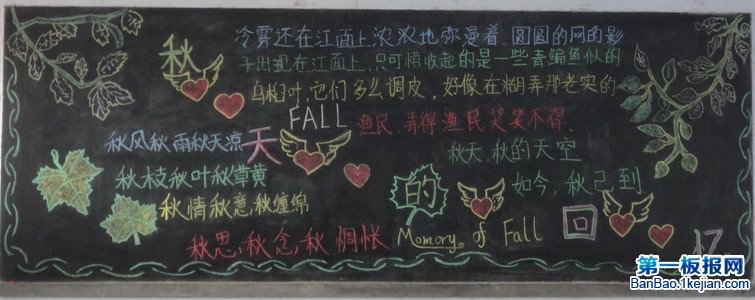 秋
天
的
回
忆
FALL
冷雾还在江面上,浓浓地弥漫着.圆圆的网的影
子出现在江面上,只可惜收起的是一些青鳊鱼似的
乌桕叶,它们多么调皮,好像在糊弄那老实的
渔民,弄得渔民哭笑不得.
秋风秋雨秋天凉
秋枝秋叶秋草黄
秋情秋意,秋缠绵
秋思,秋念,秋惆怅
秋天,秋的天空
如今,秋已到
Momory of Fall
第一板报网
BanBao.1kejian.com